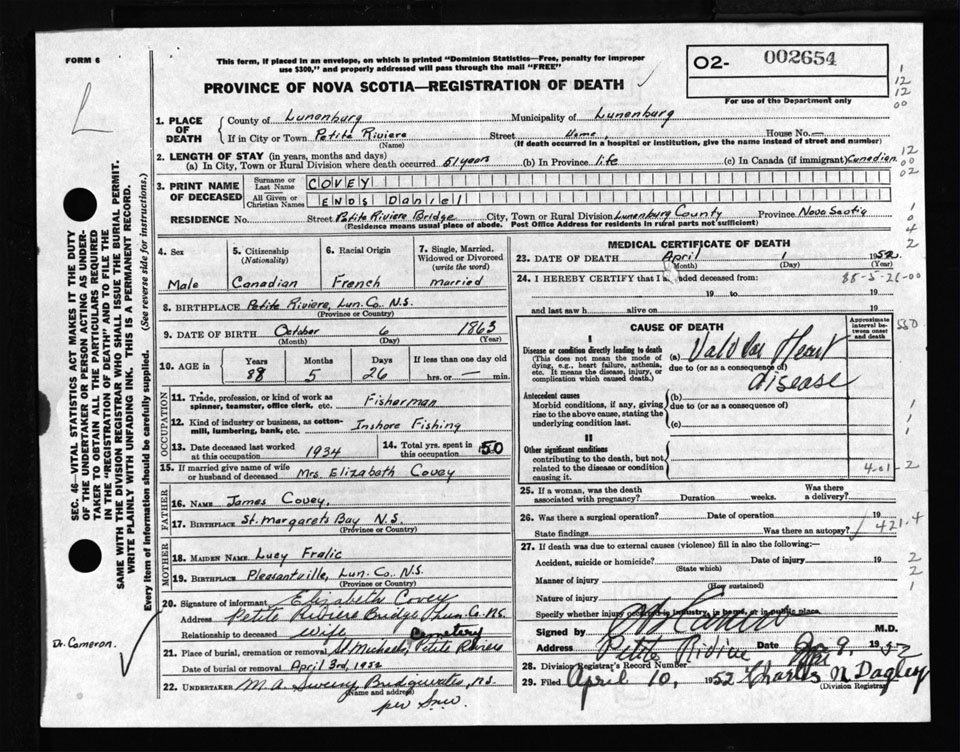 FORM 6
This form, if placed in an envelope, on which is printed "Dominion Statistics—Free, penalty for improper
use $300," and properly addressed will pass through the mail "FREE"
PROVINCE OF NOVA SCOTIA—REGISTRATION OF DEATH
O2- 002654
For use of the Department only
L
1. PLACE OF DEATH
County of Lunenburg Municipality of Lunenburg
If in City or Town Petite Riviere Street Home, House No.—
(Name) (If death occurred in a hospital or institution, give the name instead of street and number)
2. LENGTH OF STAY (in years, months and days)
(a) In City, Town or Rural Division where death occurred 51 years (b) In Province life (c) In Canada (if immigrant) Canadian
3. PRINT NAME OF DECEASED
Surname or Last Name COVEY
All Given or Christian Names ENOS Daniel
RESIDENCE No. Street Petite Riviere Bridge City, Town or Rural Division Lunenburg County Province Nova Scotia
(Residence means usual place of abode. Post Office Address for residents in rural parts not sufficient)
4. Sex Male
5. Citizenship (Nationality) Canadian
6. Racial Origin French
7. Single, Married, Widowed or Divorced (write the word) married
8. BIRTHPLACE Petite Riviere, Lun. Co. N.S.
(Province or Country)
9. DATE OF BIRTH October 6 1863
(Month) (Day) (Year)
10. AGE in Years Months Days If less than one day old
88 5 26 hrs. or — min.
OCCUPATION
11. Trade, profession, or kind of work as spinner, teamster, office clerk, etc. Fisherman
12. Kind of industry or business, as cotton-mill, lumbering, bank, etc. Inshore Fishing
13. Date deceased last worked at this occupation 1934
14. Total yrs. spent in this occupation 50
15. If married give name of wife or husband of deceased Mrs. Elizabeth Covey
FATHER
16. NAME James Covey
17. BIRTHPLACE St. Margarets Bay N.S.
(Province or Country)
MOTHER
18. MAIDEN NAME Lucy Fralic
19. BIRTHPLACE Pleasantville, Lun. Co. N.S.
(Province or Country)
20. Signature of informant Elizabeth Covey
Address Petite Riviere Bridge Lun. Co. N.S.
Relationship to deceased wife
21. Place of burial, cremation or removal St. Michaels, Cemetery Petite Riviere
Date of burial or removal April 3rd, 1952
22. UNDERTAKER M. A. Sweeny Bridgewater, N.S.
(Name and address)
MEDICAL CERTIFICATE OF DEATH
23. DATE OF DEATH April 1 1952
(Month) (Day) (Year)
24. I HEREBY CERTIFY that I a nded deceased from:
88-5-26-00
19 to 19
and last saw h alive on 19
CAUSE OF DEATH
Approximate interval between onset and death
I
Disease or condition directly leading to death
(This does not mean the mode of dying, e.g., heart failure, asthenia, etc. It means the disease, injury, or complication which caused death.)
(a) Valvular Heart
due to (or as a consequence of)
disease
Antecedent causes
Morbid conditions, if any, giving rise to the above cause, stating the underlying condition last.
(b)
due to (or as a consequence of)
(c)
II
Other significant conditions
contributing to the death, but not related to the disease or condition causing it.
4-01-2
25. If a woman, was the death associated with pregnancy? Duration weeks. Was there a delivery?
26. Was there a surgical operation? Date of operation 19
State findings Was there an autopsy?
421.4
27. If death was due to external causes (violence) fill in also the following:—
Accident, suicide or homicide? Date of injury 19
(State which)
Manner of injury
(How sustained)
Nature of injury
Specify whether injury occurred in industry, in home, or in public place.
Signed by M.D.
Address Petite Riviere Date 9, 1952
28. Division Registrar's Record Number
29. Filed April 10, 1952 Charles N Dagley
(Division Registrar)
SEC. 46—VITAL STATISTICS ACT MAKES IT THE DUTY
OF THE UNDERTAKER OR PERSON ACTING AS UNDER-
TAKER TO OBTAIN ALL THE PARTICULARS REQUIRED
IN THE "REGISTRATION OF DEATH" AND TO FILE THE
SAME WITH THE DIVISION REGISTRAR WHO SHALL ISSUE THE BURIAL PERMIT.
WRITE PLAINLY WITH UNFADING INK. THIS IS A PERMANENT RECORD.
Every item of information should be carefully supplied. (See reverse side for instructions.)
Dr. Cameron.
1
12
12
00
12
00
02
1
0
4
2
550
1
1
2
2
2
1